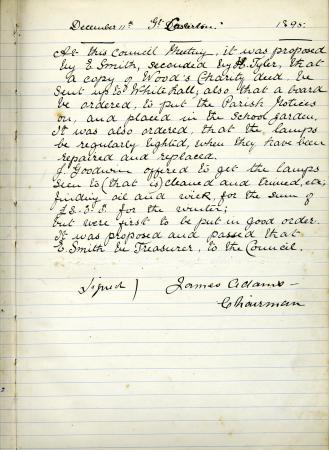 December 11th Gt Casterton. 1895.
At this Council Meeting, it was proposed
by E. Smith, seconded by H. Tyler, that
a copy of Wood's Charity deed be
sent up to Whitehall; also, that a board
be ordered, to put the Parish Notices
on, and placed in the School garden.
It was also ordered, that the lamps
be regularly lighted, when they have been
repaired and replaced.
J. Goodwin offered to get the lamps
seen to (that is) cleaned and trimed, etc;
finding oil and wick, for the sum of
for the winter;
but were first to be put in good order.
It was proposed and passed that
E. Smith be Treasurer, to the Council.
Signed) James Adams
Chairman